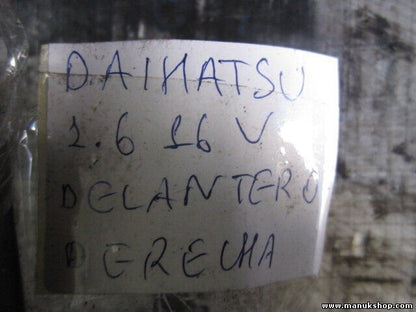 DAIHATSU
1.6 16 V
DELANTERO
DERECHA
www.manukshop.com